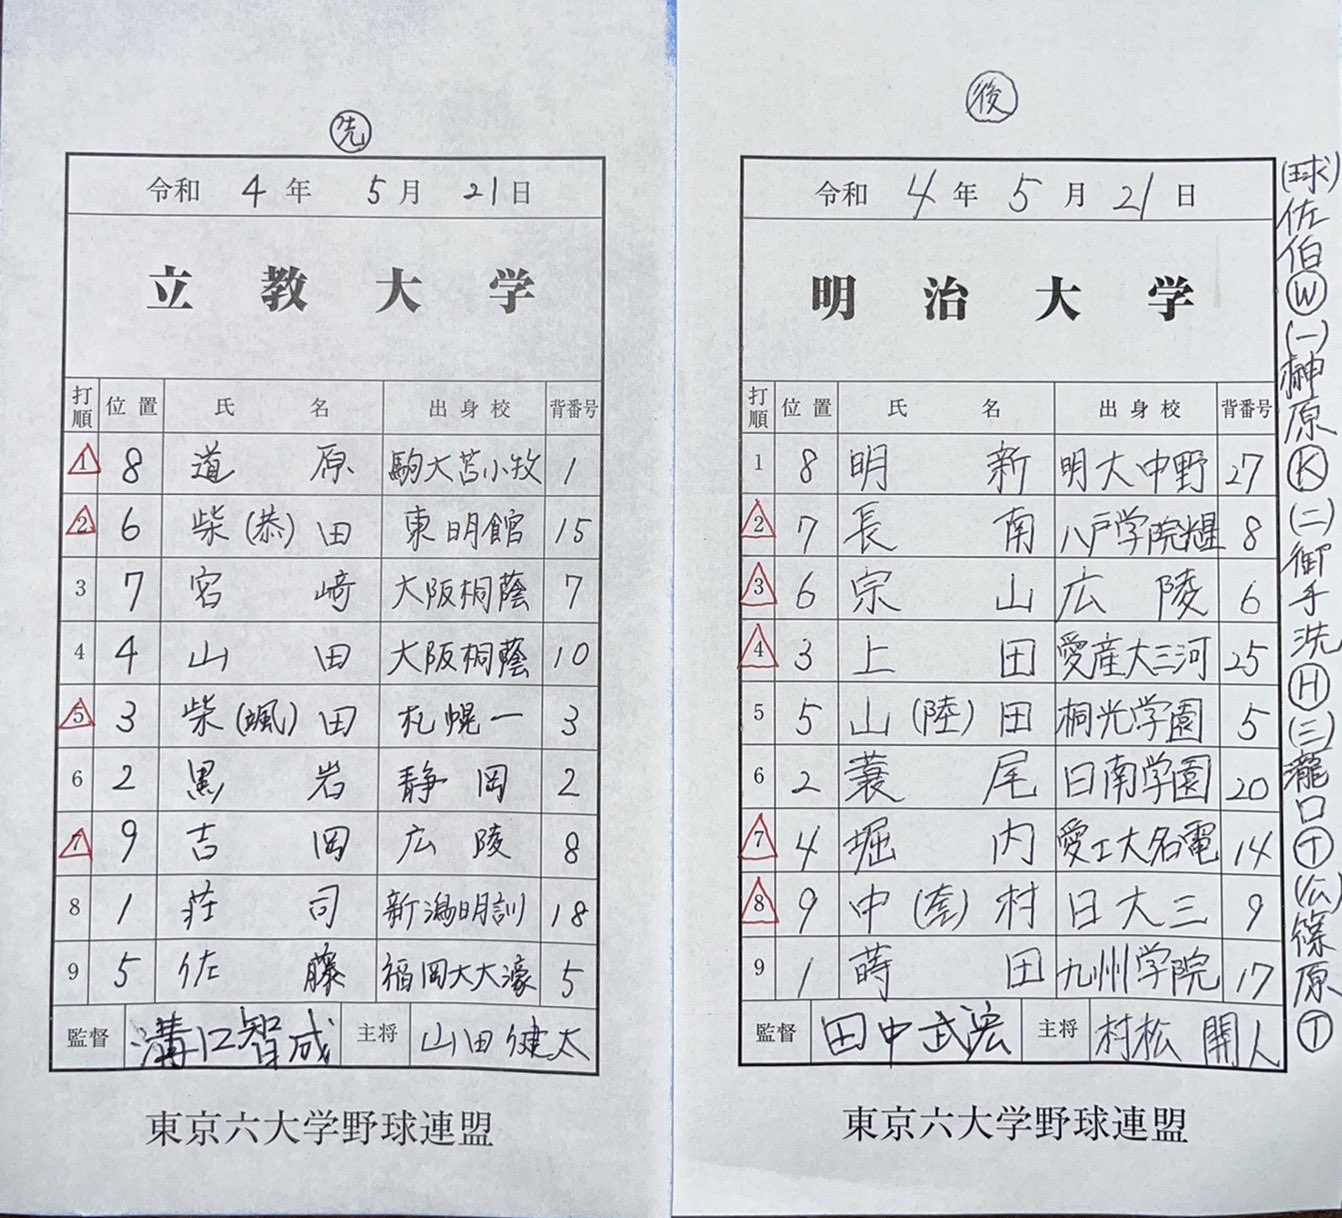 先
令和 4 年 5 月 21 日
立教大学
打順 位置 氏名 出身校 背番号
1 8 道原 駒大苫小牧 1
2 6 柴(恭)田 東明館 15
3 7 宮﨑 大阪桐蔭 7
4 4 山田 大阪桐蔭 10
5 3 柴(颯)田 札幌一 3
6 2 黒岩 静岡 2
7 9 吉岡 広陵 8
8 1 荘司 新潟明訓 18
9 5 佐藤 福岡大大濠 5
監督 溝口智成 主将 山田健太
東京六大学野球連盟
後
令和 4 年 5 月 21 日
明治大学
打順 位置 氏名 出身校 背番号
1 8 明新 明大中野 27
2 7 長南 八戸学院光星 8
3 6 宗山 広陵 6
4 3 上田 愛産大三河 25
5 5 山(陸)田 桐光学園 5
6 2 蓑尾 日南学園 20
7 4 堀内 愛工大名電 14
8 9 中(奎)村 日大三 9
9 1 蒔田 九州学院 17
監督 田中武宏 主将 村松開人
東京六大学野球連盟
(球)佐伯Ⓦ(一)榊原Ⓚ(二)御手洗Ⓗ(三)瀧口Ⓣ(公)篠原Ⓣ